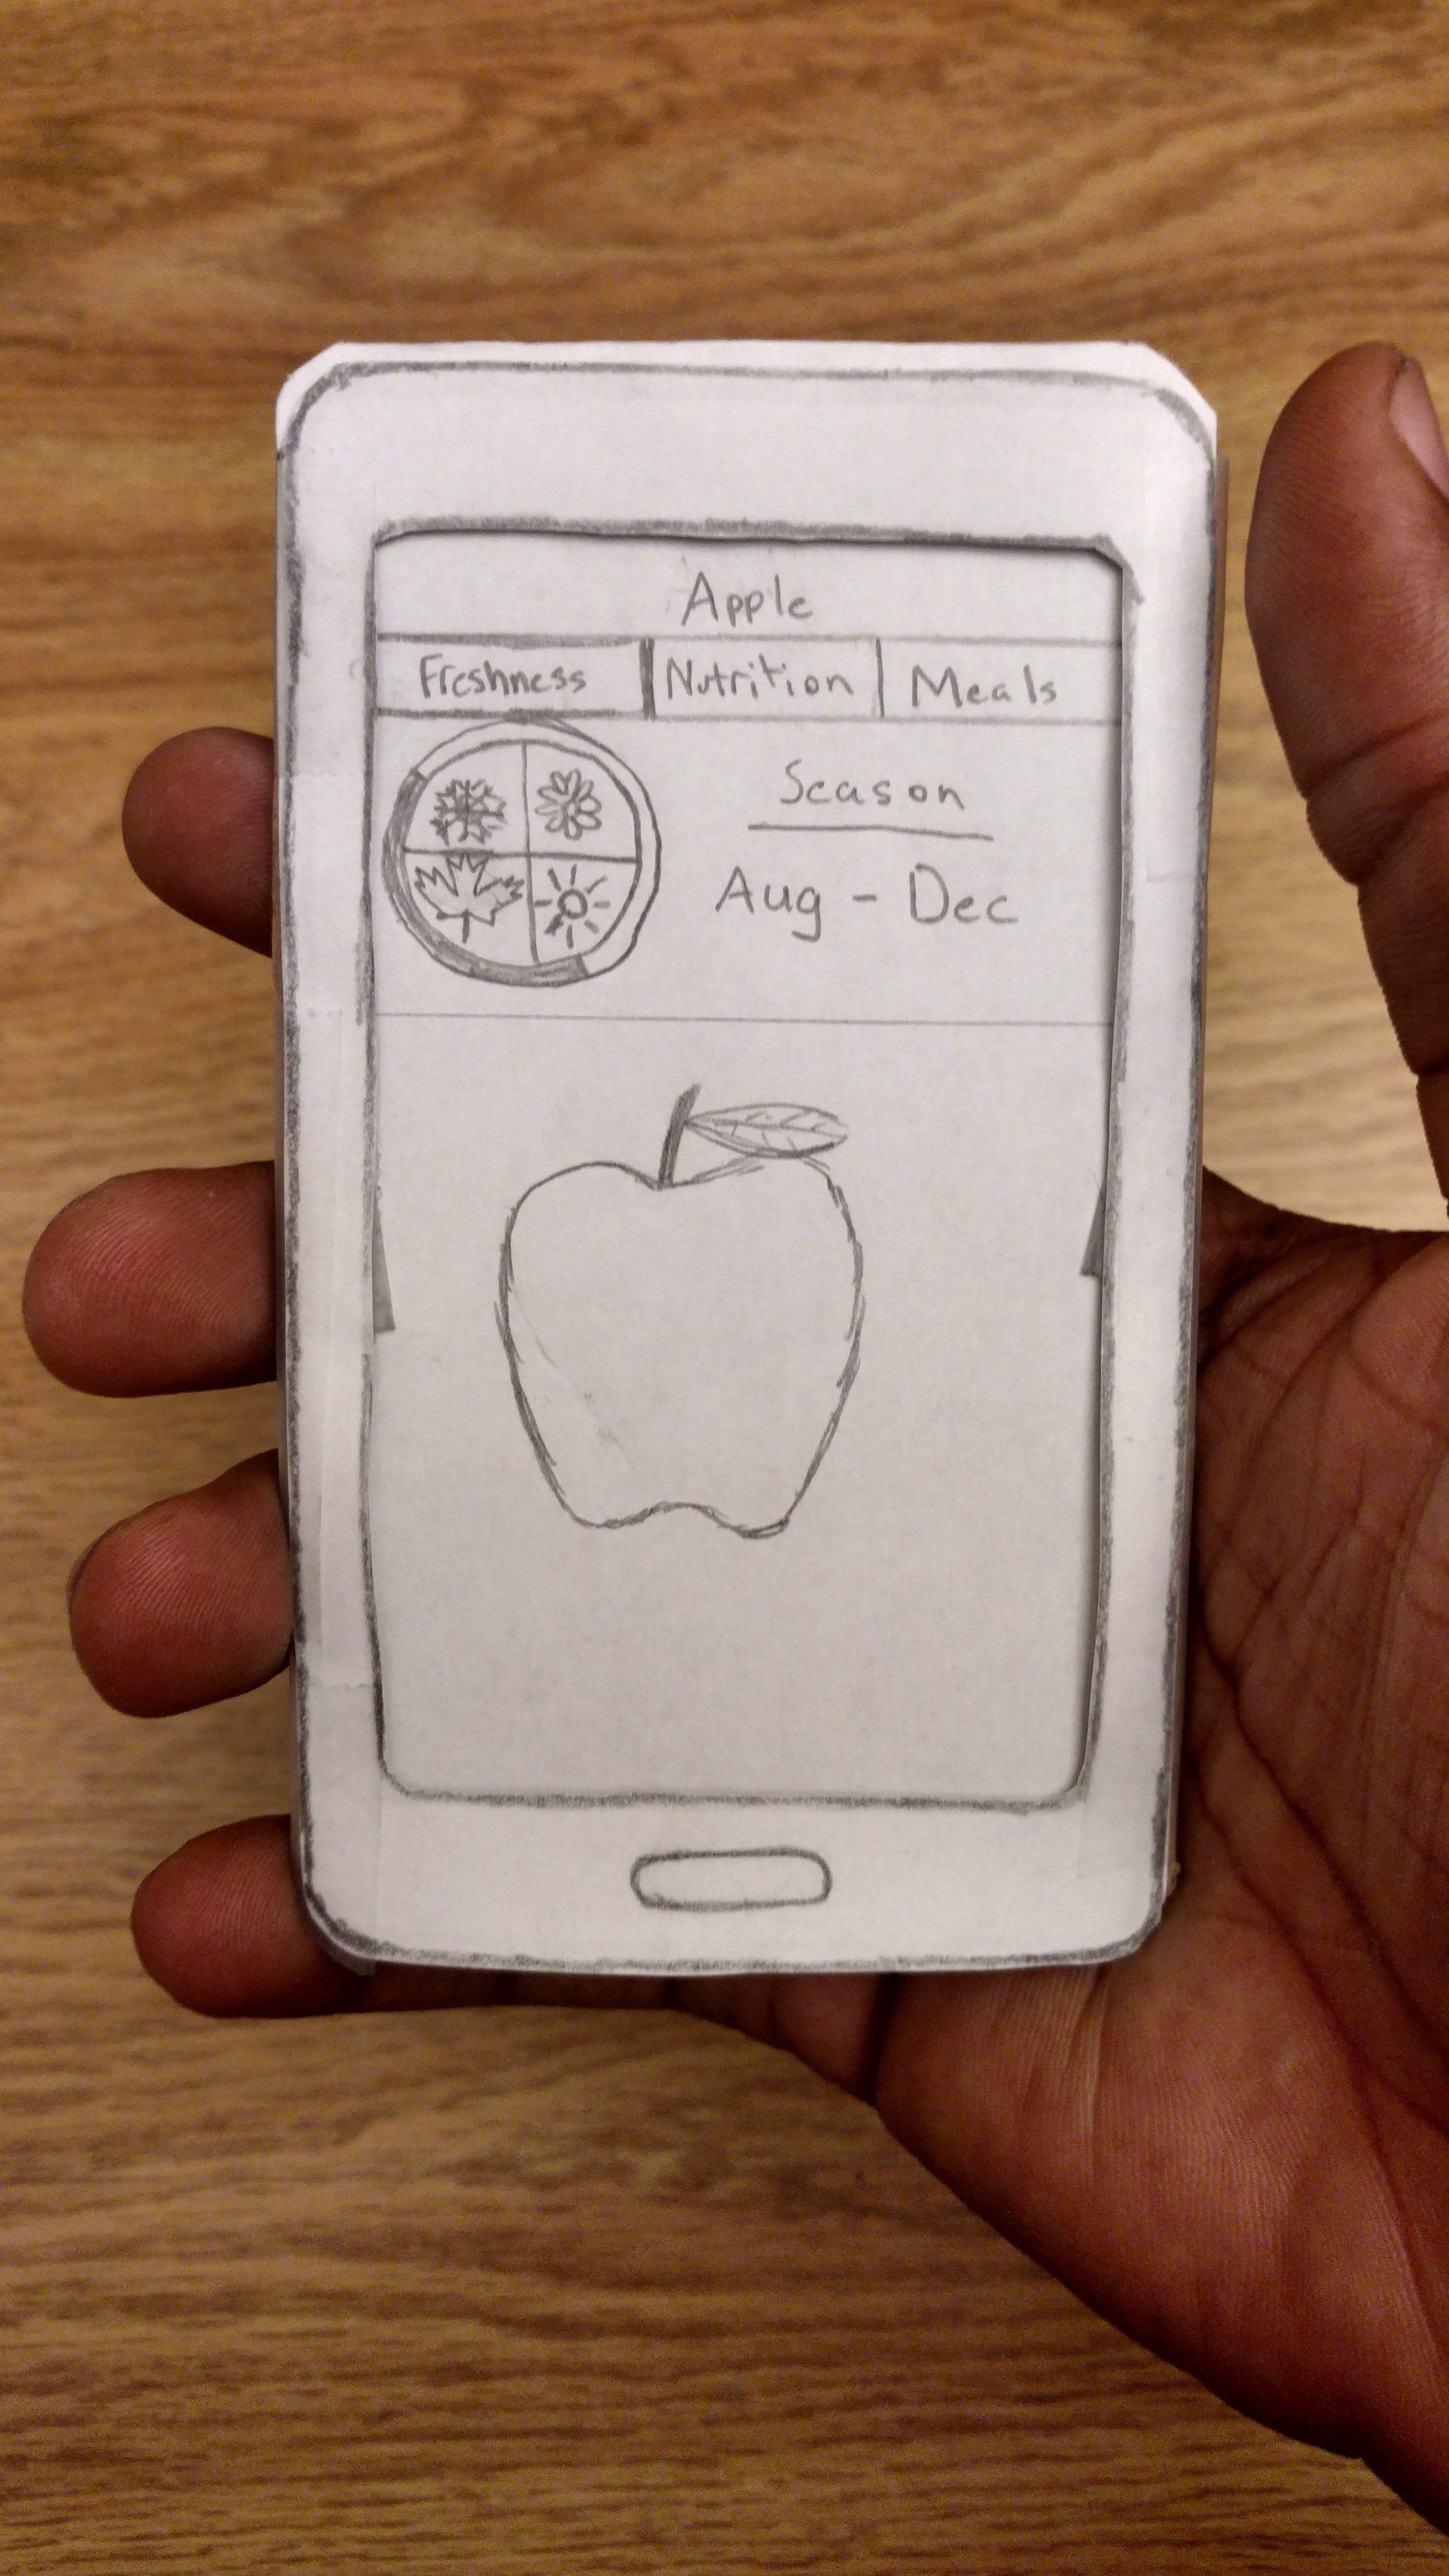 Apple
Freshness Nutrition Meals
Season
Aug - Dec